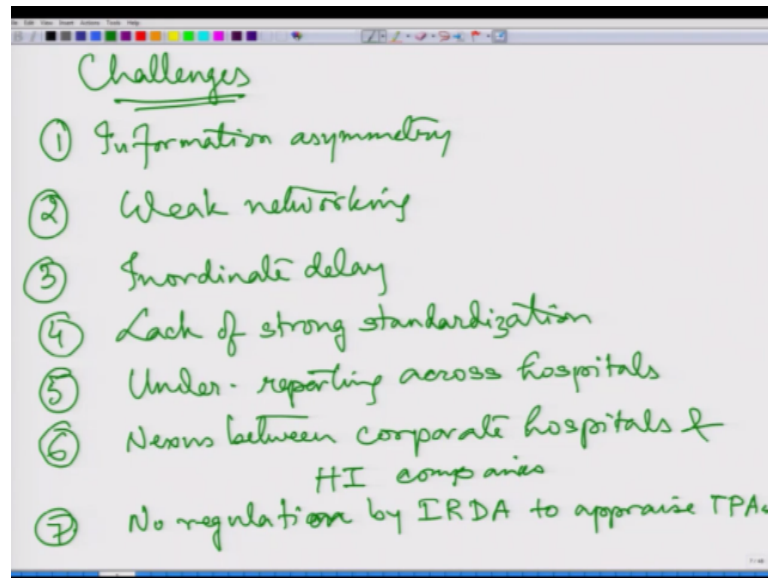 Challenges
① Information asymmetry
② Weak networking
③ Inordinate delay
④ Lack of strong standardization
⑤ Under-reporting across hospitals
⑥ Nexus between corporate hospitals &
HI companies
⑦ No regulation by IRDA to appraise TPAs